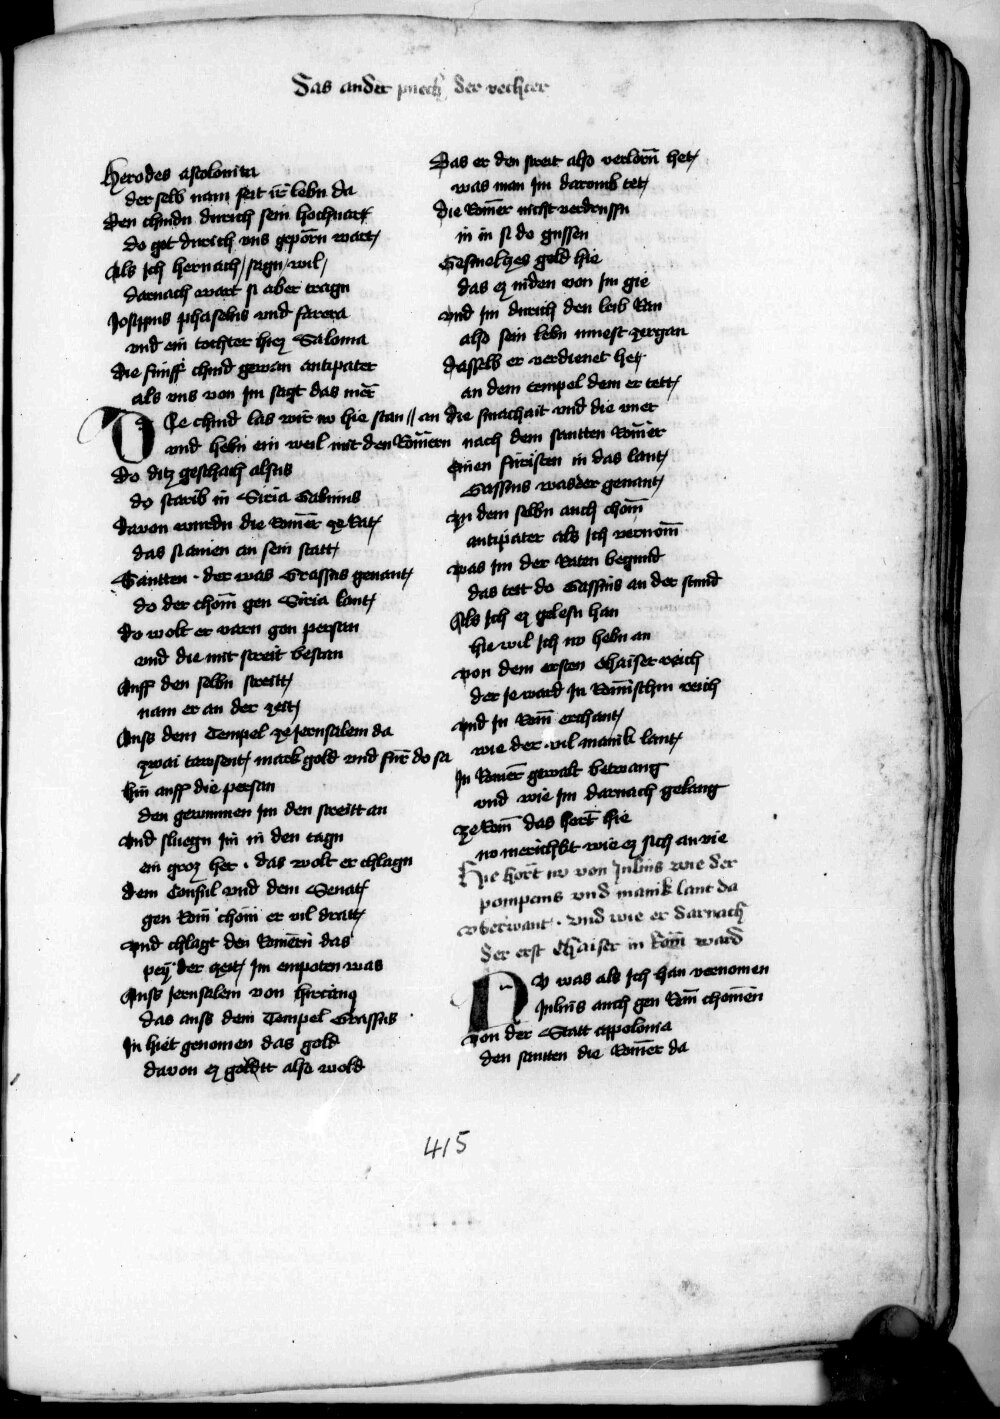 Das ander puech der vechter
Herodes ascolonita
der selb nam seit ir lebn da
den chindn durich sein hochuart
do got durich vns geporn wart
Als ich hernach sagn wil
darnach wart si aber tragn
Josippus phaselus vnd farora
vnd ein tochter hiez Saloma
die funff chind gewan antipater
als vns von im sagt das mer
Die chind las wir no hie stan //
vnd hebn ein weil mit den Römern an
do ditz geschach alsus
do starib in Siria Gabinius
davon wurdn die Römer ze Rat
das si ainen an sein statt
Santten · der was Crassus genant
do der chom gen Siria lant
do wolt er varn gen persan
vnd die mit streit bestan
Auff den selbn streitt
nam er an der zeit
Auss dem Tempel ze Jerusalem da
zwai tawsent mark gold vnd fur do sa
hin auff die persan
den gewunnen im den streitt an
vnd sluegn im in den tagn
ein groz her · das wolt er chlagn
dem Consul vnd dem Senat
gen Rom chom er vil dratt
vnd chlagt den Römern das
pey der zeit im enpoten was
Auss Jerusalem von hircano
das auss dem Tempel Crassus
In hiet genomen das gold
davon ez goldt also wold
Das er den streit also verlorn het
was man im daromb tet
die Römer nicht verdrussn
in in si do gussen
Gesmeltzes gold hie
das ez niden von im gie
vnd im durich den leib Ran
also sein lebn muest zergan
dasselb er verdienet het
an dem tempel dem er tett
die smachait vnd die vner
nach dem santten Römer
Einen fursten in das lant
Cassius was der genant
zu dem selbn auch chom
antipater als ich vernom
was im der Raten begund
das tett do Cassius an der stund
Als ich ez gelesn han
hie wil ich no hebn an
von dem ersten Chaiser reich
der ie ward in Römischm reich
vnd in Rom erchant
wie der vil manik lant
In Römer gewalt betwang
vnd wie im darnach gelang
ze Rom das hort hie
no merichkt wie ez sich an vie
Hie hort no von Julius wie der
pompeus vnd manik lant da
vberwant · vnd wie er darnach
der erst Chaiser in Rom ward
No was als ich han vernomen
Julius auch gen Rom chomen
von der Statt appolonia
den santten die Römer da
415